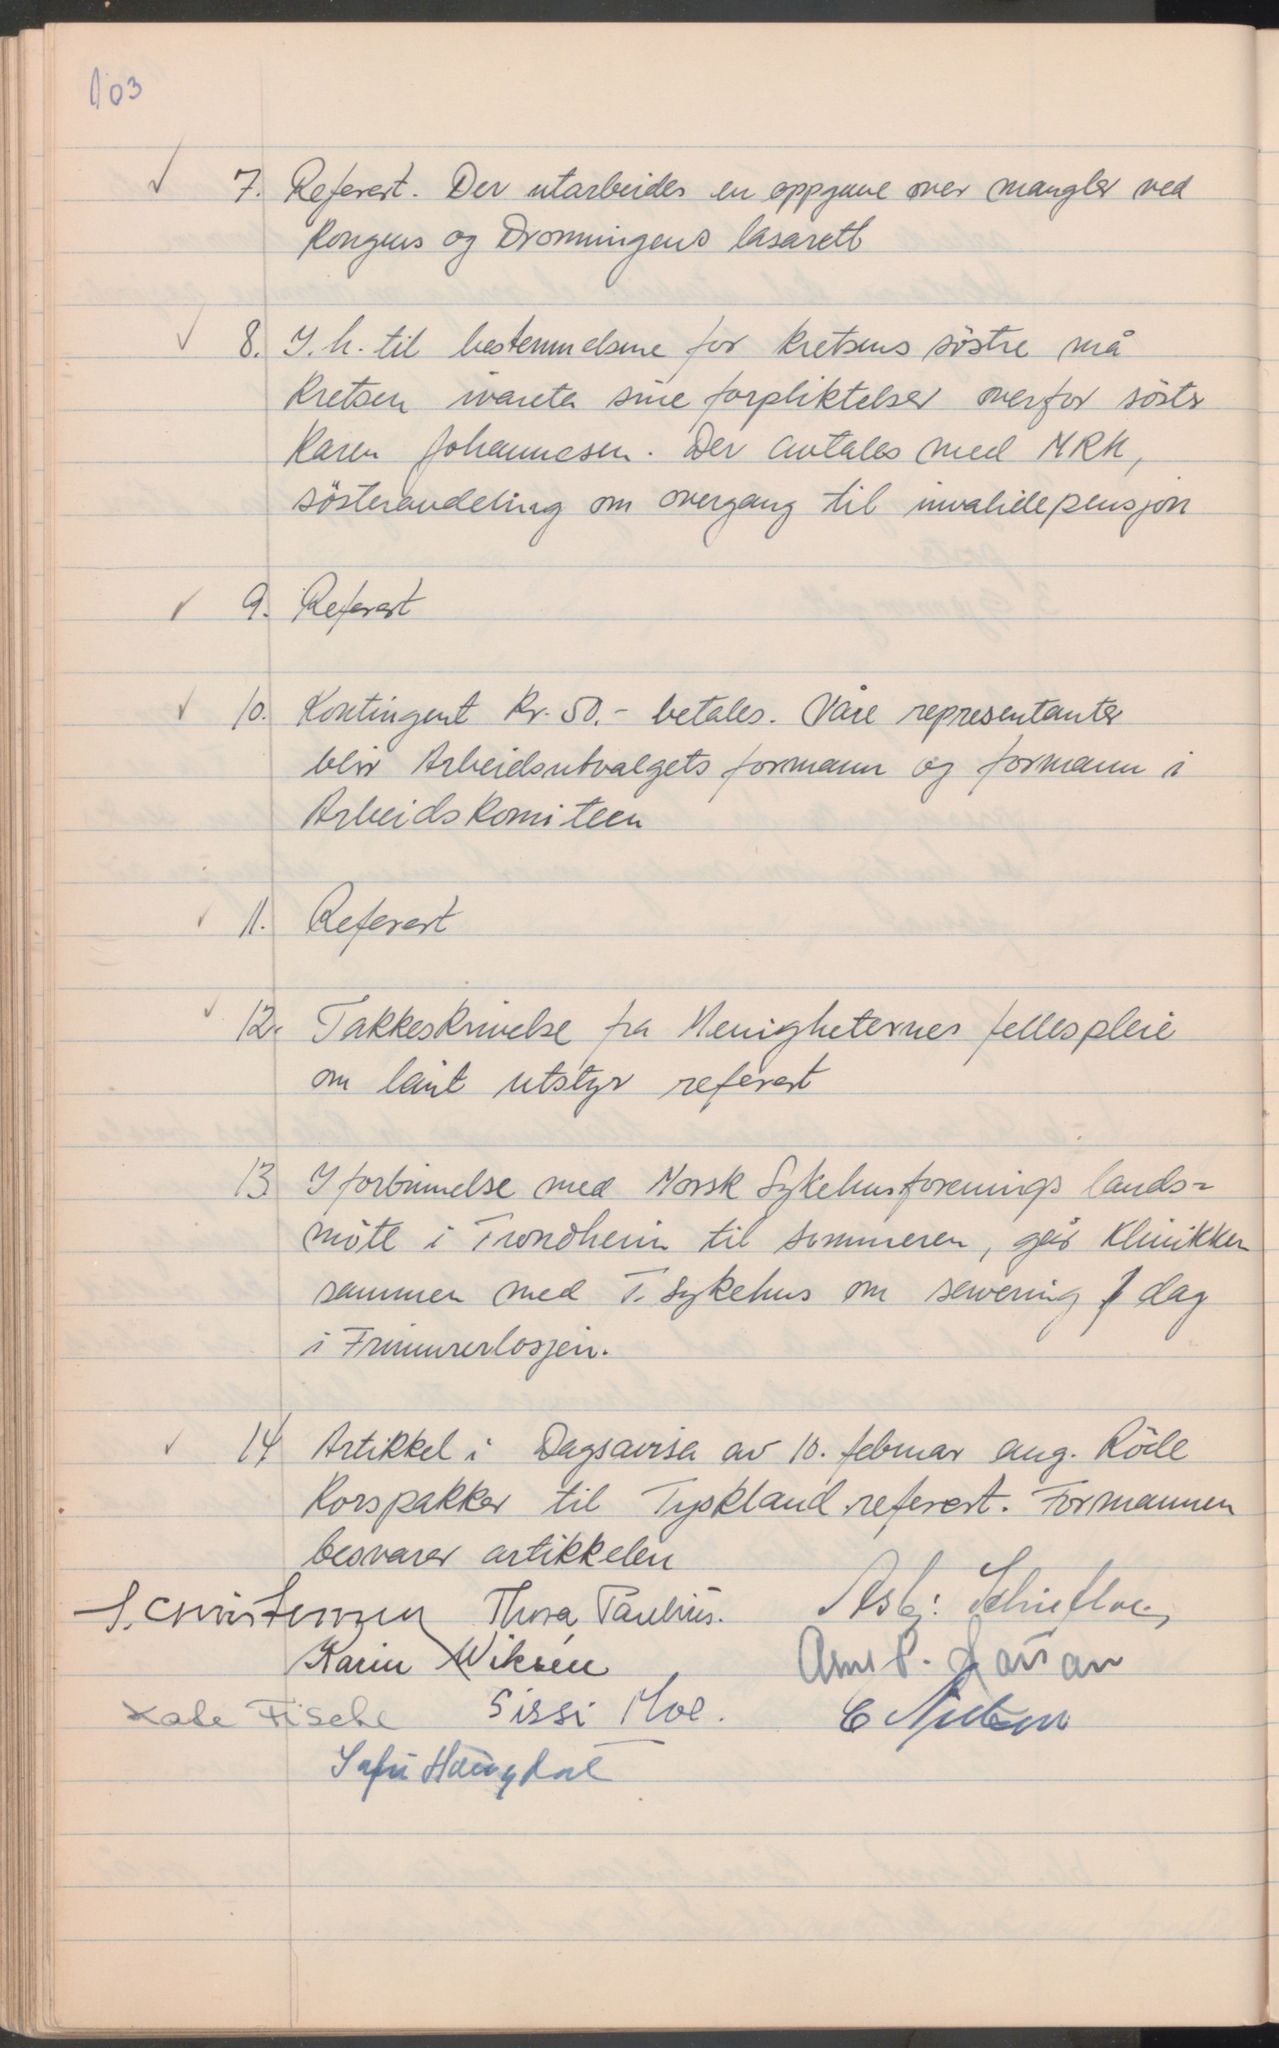 103
7. Referert. Der utarbeides en oppgave over mangler ved
Kongens og Dronningens lasarett
8. I.h. til bestemmelsene for kretsens söstre må
Kretsen ivareta sine forpliktelser overfor söster
Karen Johannesen. Der avtales med NRK,
sösteravdeling om overgang til invalidepensjon
9. Referert
10. Kontingent kr. 50.- betales. Våre representanter
blir Arbeidsutvalgets formann og formann i
Arbeidskomiteen
11. Referert
12. Takkeskrivelse fra Menigheternes fellespleie
om lånt utstyr referert
13 I forbinnelse med Norsk Sykehusforenings lands=
möte i Trondheim til sommeren, går Klinikken
sammen med T. Sykehus om servering 1 dag
i Frimurerlosjen.
14 Artikkel i Dagsavisa av 10. februar ang. Röde
Korspakker til Tyskland referert. Formannen
besvarer artikkelen
S. Christensen Thora Paulius. Asbj:
Karin Wiksén Arne P.
Kate Fische Sissi Moe. C Nielsen
Haugdal